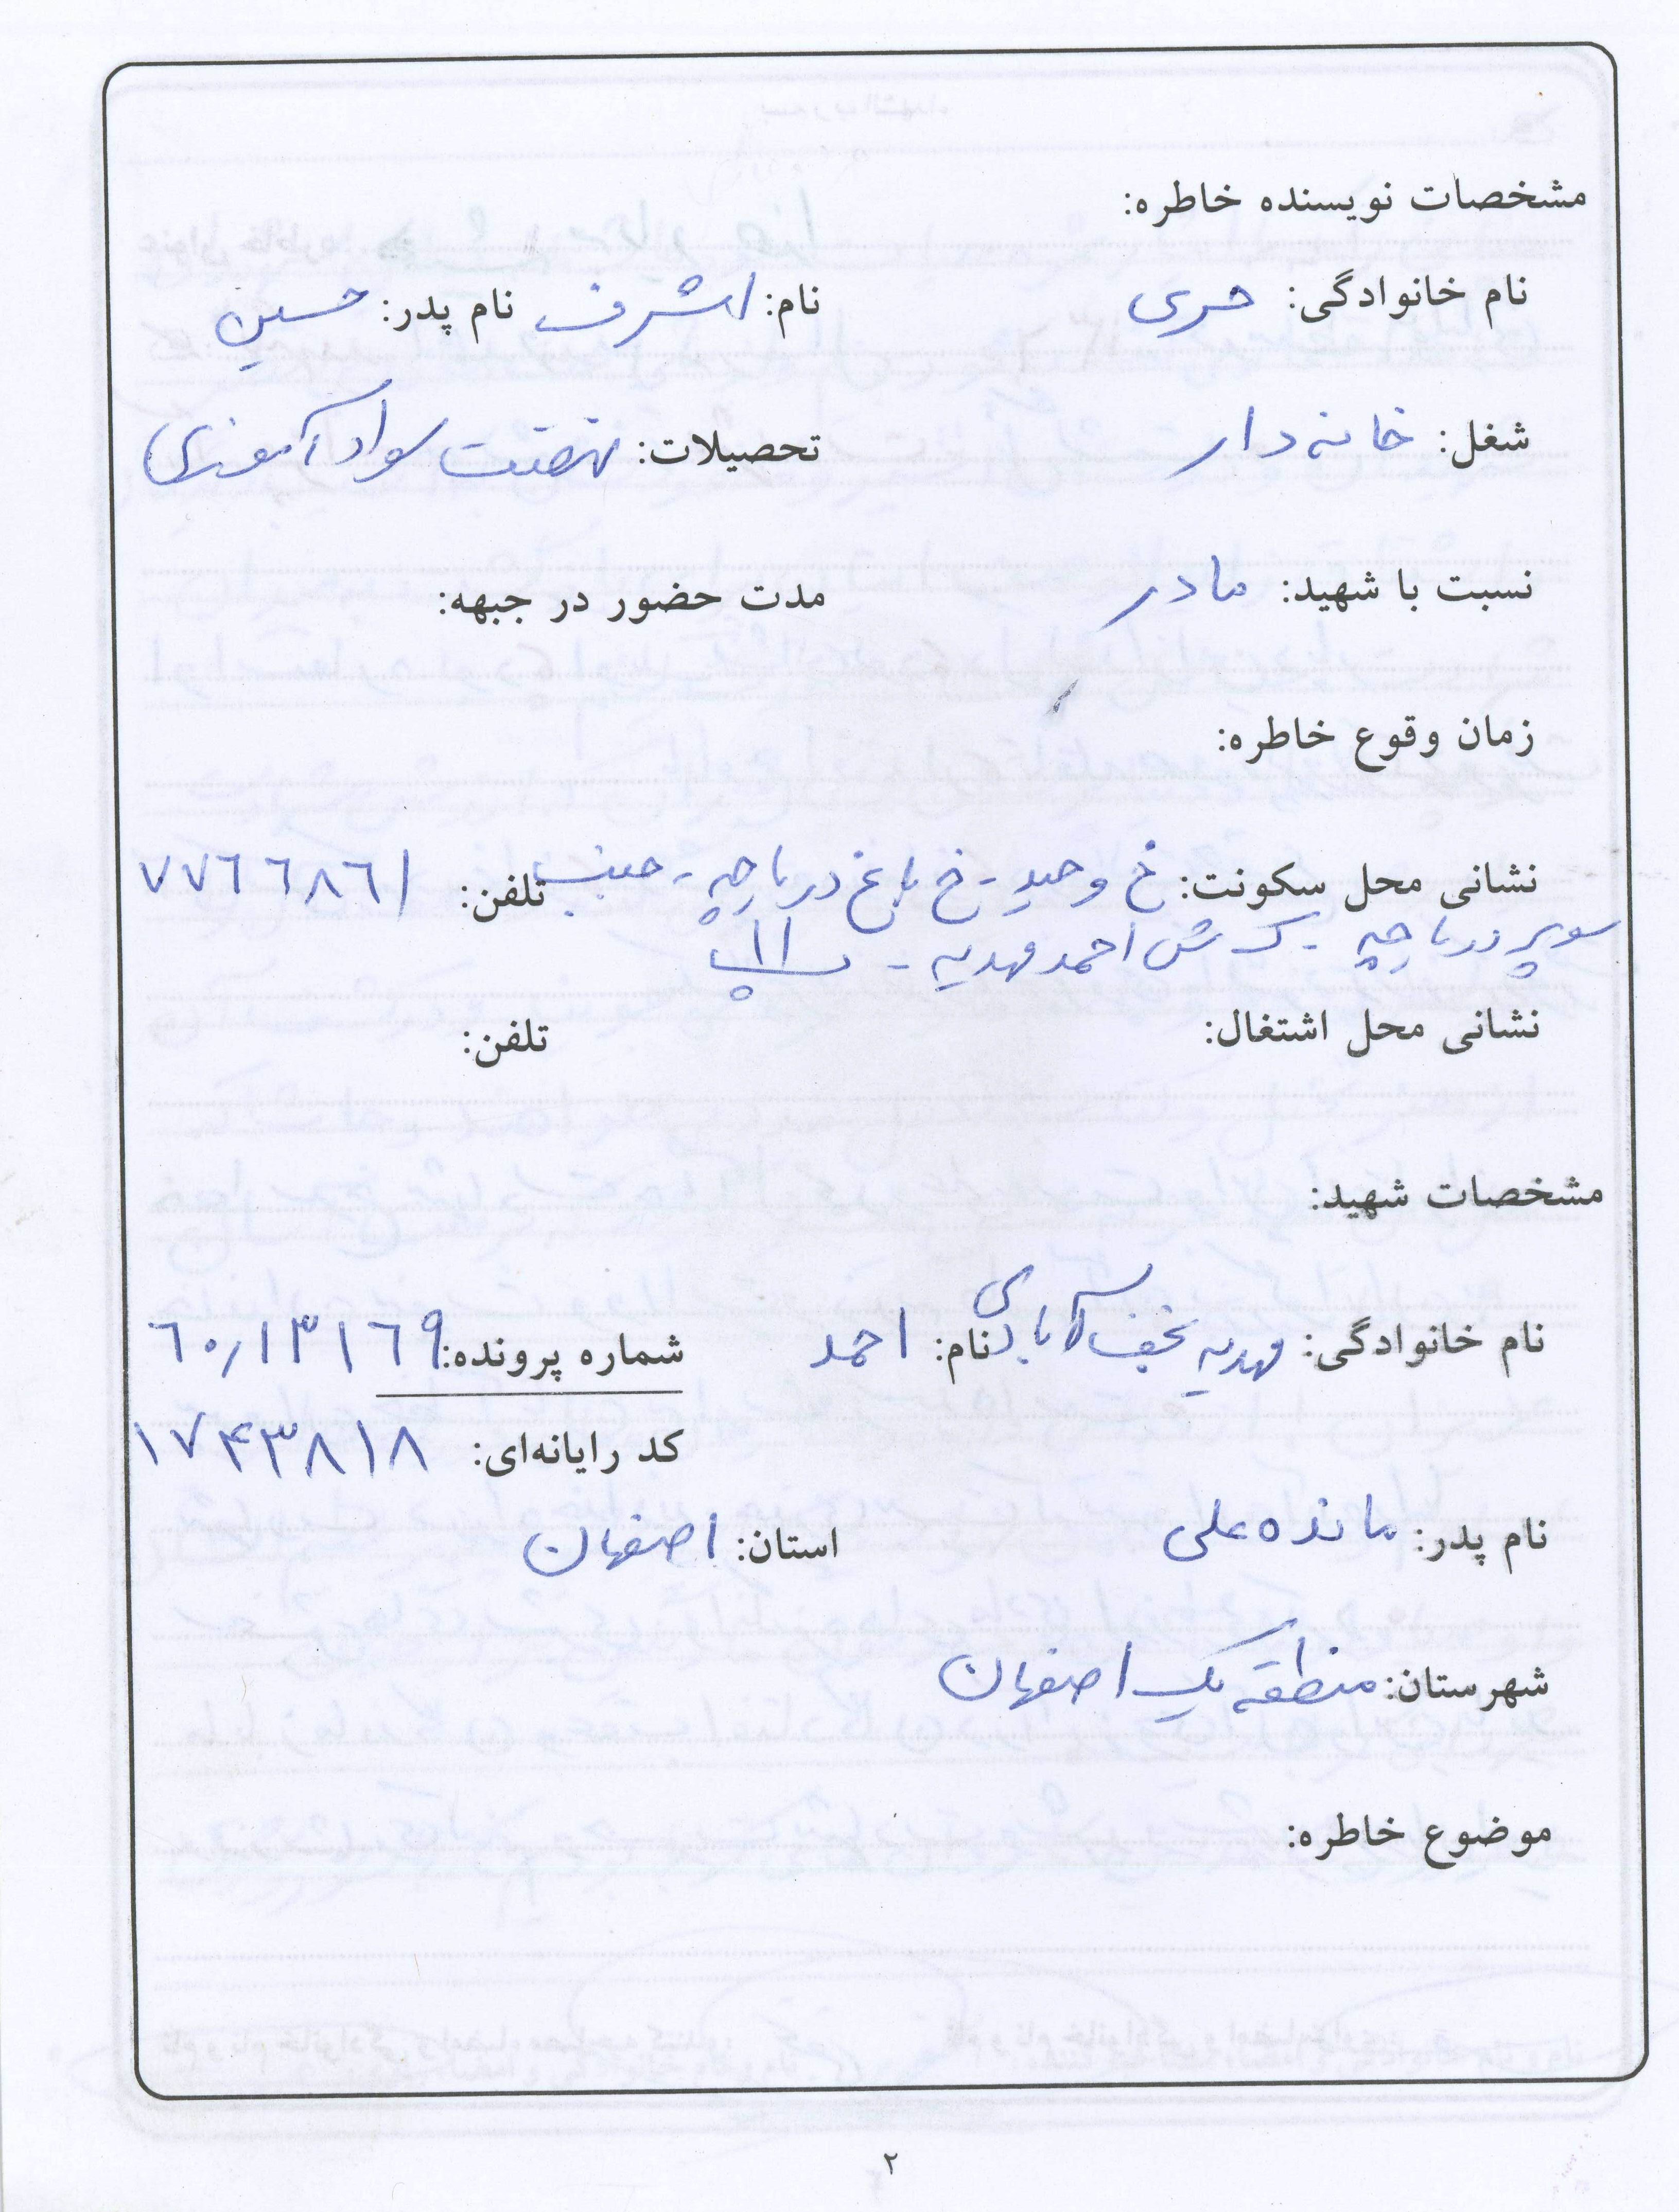 مشخصات نویسنده خاطره:
نام خانوادگی: حری نام: اشرف نام پدر: حسین
شغل: خانه دار تحصیلات: نهضت سواد آموزی
نسبت با شهید: مادر مدت حضور در جبهه:
زمان وقوع خاطره:
نشانی محل سکونت: خ وحید - خ باغ دریاچه - جنب تلفن: ۷۷٦٦۸٦۱
سوپر دریاچه - ک ش احمد مهدیه - پ ۱۱
نشانی محل اشتغال: تلفن:
مشخصات شهید:
نام خانوادگی: مهدیه نجف آبادی نام: احمد شماره پرونده: ٦۰٫۱۳۱٦۹
کد رایانه‌ای: ۱۷۴۳۸۱۸
نام پدر: مانده علی استان: اصفهان
شهرستان: منطقه یک اصفهان
موضوع خاطره:
۲